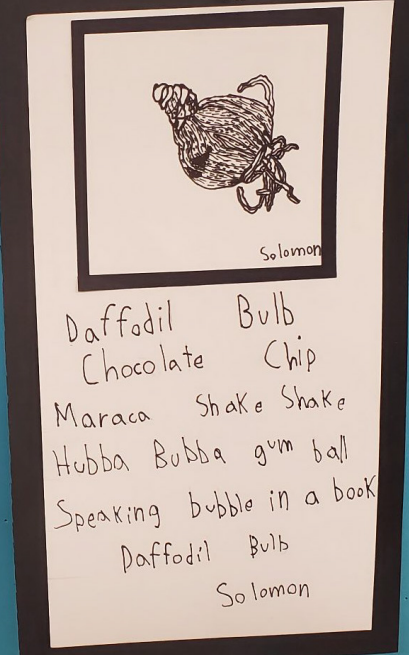 Solomon
Daffodil Bulb
Chocolate Chip
Maraca Shake Shake
Hubba Bubba gum ball
Speaking bubble in a book
Daffodil Bulb
Solomon